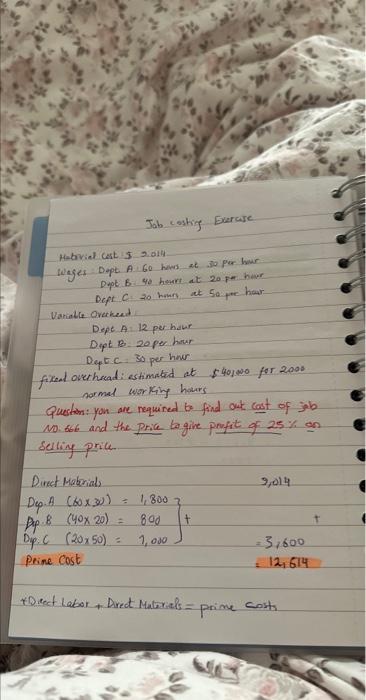 Job costing Exercise
Material cost: $ 9.014
Wages: Dept A: 60 hours at 30 per hour
Dept B: 40 hours at 20 per hour
Dept C: 20 hours at 50 per hour
Variable Overhead:
Dept A: 12 per hour
Dept B: 20 per hour
Dept C: 30 per hour
fixed overhead: estimated at $ 40,000 for 2000
normal working hours
Question: you are required to find out cost of job
NO. 666 and the price to give profit of 25 % on
Selling price.
Direct Materials 9,014
Dep. A (60 x 30) = 1,800
Dep. B (40 x 20) = 800 + +
Dep. C (20 x 50) = 1,000 = 3,600
Prime Cost = 12,614
* Direct Labor + Direct Materials = prime costs